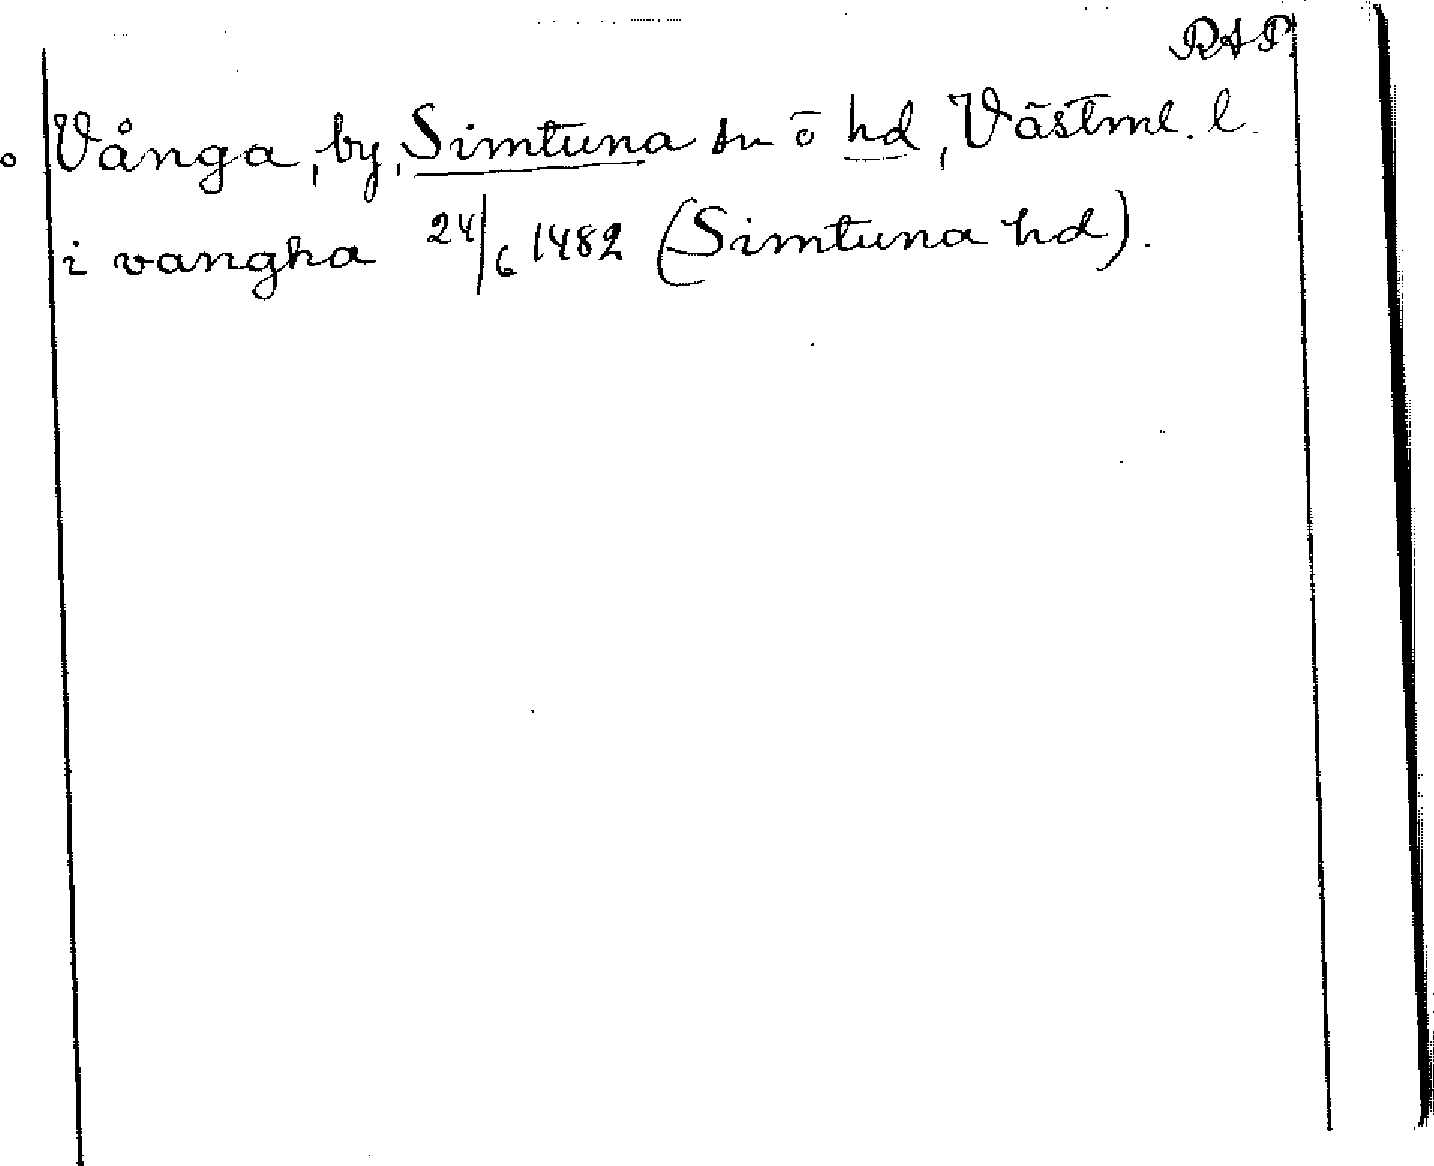 RAP
Vånga, by, Simtuna sn o hd, Västml. l.
i vangha 24/6 1482 (Simtuna hd).